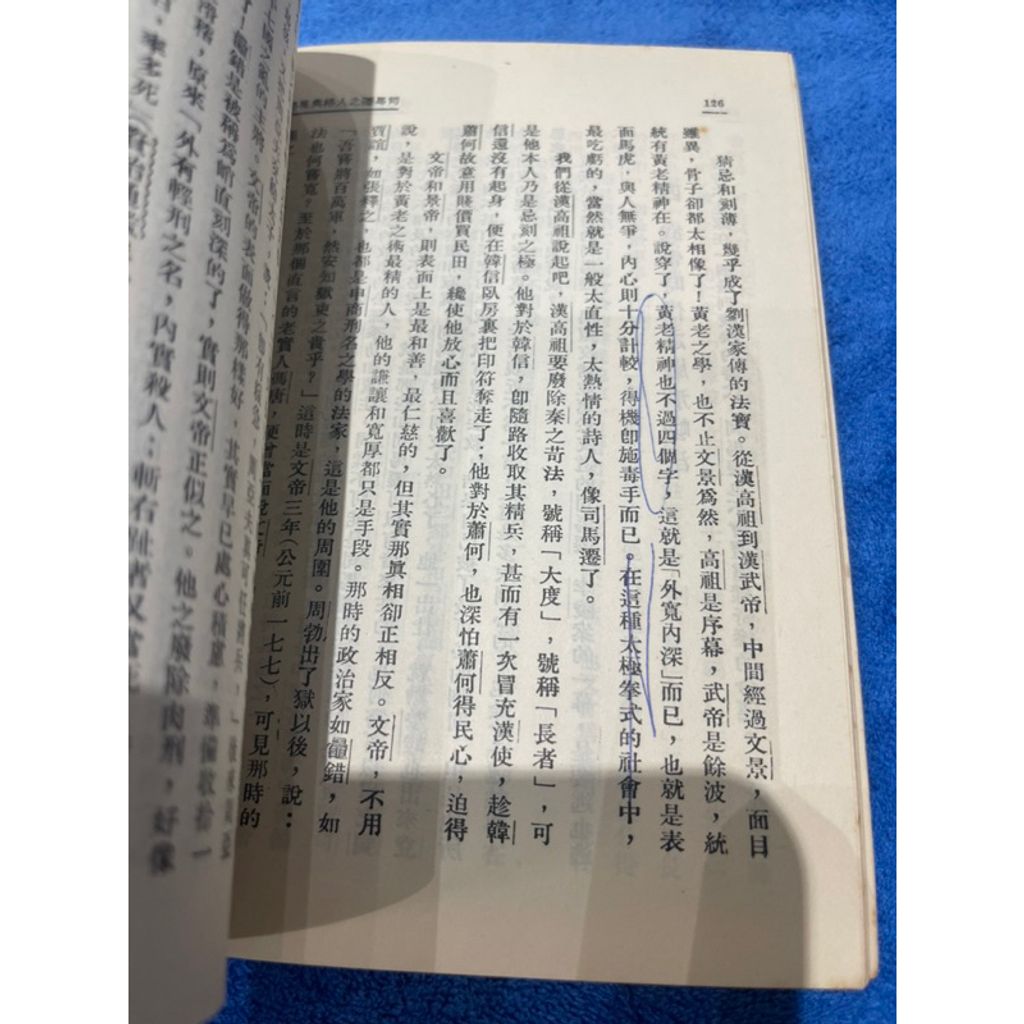 126
司馬遷之人格與風格
猜忌和刻薄，幾乎成了劉漢家傳的法寶。從漢高祖到漢武帝，中間經過文景，面目
雖異，骨子卻都太相像了！黃老之學，也不止文景爲然，高祖是序幕，武帝是餘波，統
統有黃老精神在。說穿了，黃老精神也不過四個字，這就是「外寬內深」而已，也就是表
面馬虎，與人無爭，內心則十分計較，得機卽施毒手而已。在這種太極拳式的社會中，
最吃虧的，當然就是一般太直性，太熱情的詩人，像司馬遷了。
我們從漢高祖說起吧，漢高祖要廢除秦之苛法，號稱「大度」，號稱「長者」，可
是他本人乃是忌刻之極。他對於韓信，卽隨路收取其精兵，甚而有一次冒充漢使，趁韓
信還沒有起身，便在韓信臥房裏把印符奪走了；他對於蕭何，也深怕蕭何得民心，迫得
蕭何故意用賤價買民田，纔使他放心而且喜歡了。
文帝和景帝，則表面上是最和善，最仁慈的，但其實那眞相卻正相反。文帝，不用
說，是對於黃老之術最精的人，他的謙讓和寬厚都只是手段。那時的政治家如鼂錯，如
賈誼，如張釋之，也都是申商刑名之學的法家，這是他的周圍。周勃出了獄以後，說：
「吾嘗將百萬軍，然安知獄吏之貴乎？」這時是文帝三年（公元前一七七），可見那時的
法也何嘗寬？至於那個直言的老實人馮唐，便曾當面說文帝
的主將。文帝的表面儘得那樣好，其實早已處心積慮，準備收拾一
了！鼂錯是被稱爲峭直刻深的了，實則文帝正似之。他之廢除肉刑，好像
原來「外有輕刑之名，內實殺人；斬右趾者又當死
率多死